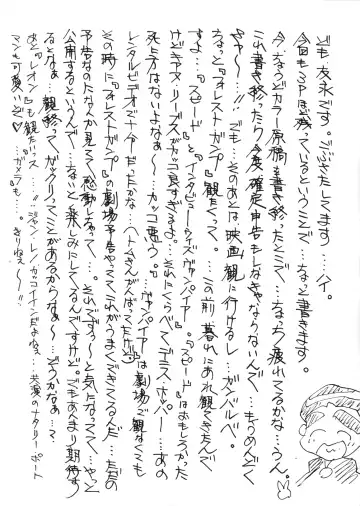 ども、友永です。ジジきたしてします……イ。
今回も3Pほど残っているということで…なっと書きます。
今、なうどカラー原稿を書き終ったとこで…なっち疲れてるかな…うん。
これ書き終ったら今度確定申告もしなきゃならないんで…もうめんどく
さや〜…!! でも…そのあとは映画観に行けるし…ガバルベ。
なっと『フォレストガンプ』観たくって。…この前暮れにあれ観てきたんで
すよ…『スピード』と『インタビューウィズヴァンパイア』。『スピード』はおもしろかった
けどキアヌ・リーブスがカッコ良すぎるよ。それにくらべてデニス・ホッパー…あの
死に方はないよなぁ〜…カッコ悪う。『ヴァンパイア』は劇場で観なくても
レンタルビデオでナオだったかな…ヘトムさんがんばってたけど
その時に『フォレストガンプ』の劇場予告やっててこれがうまくできてるんだ…ただの
予告なのになんか見てて感動しちゃって…それでずう〜と気になってて…やっと
公開するというんで…ないで楽しみにしてるんですけど。でもあんまり期待す
るとなぁ…観終ってガックリってことがあるからなぁ〜…どうかなぁ…?
あと『レオン』も観たいっス…!! ジャン・レノカッコイインだよねぇ…共演のナタリー・ポート
マンも可愛いぞ♥『ガメラ』も…。きりねぇ〜!!